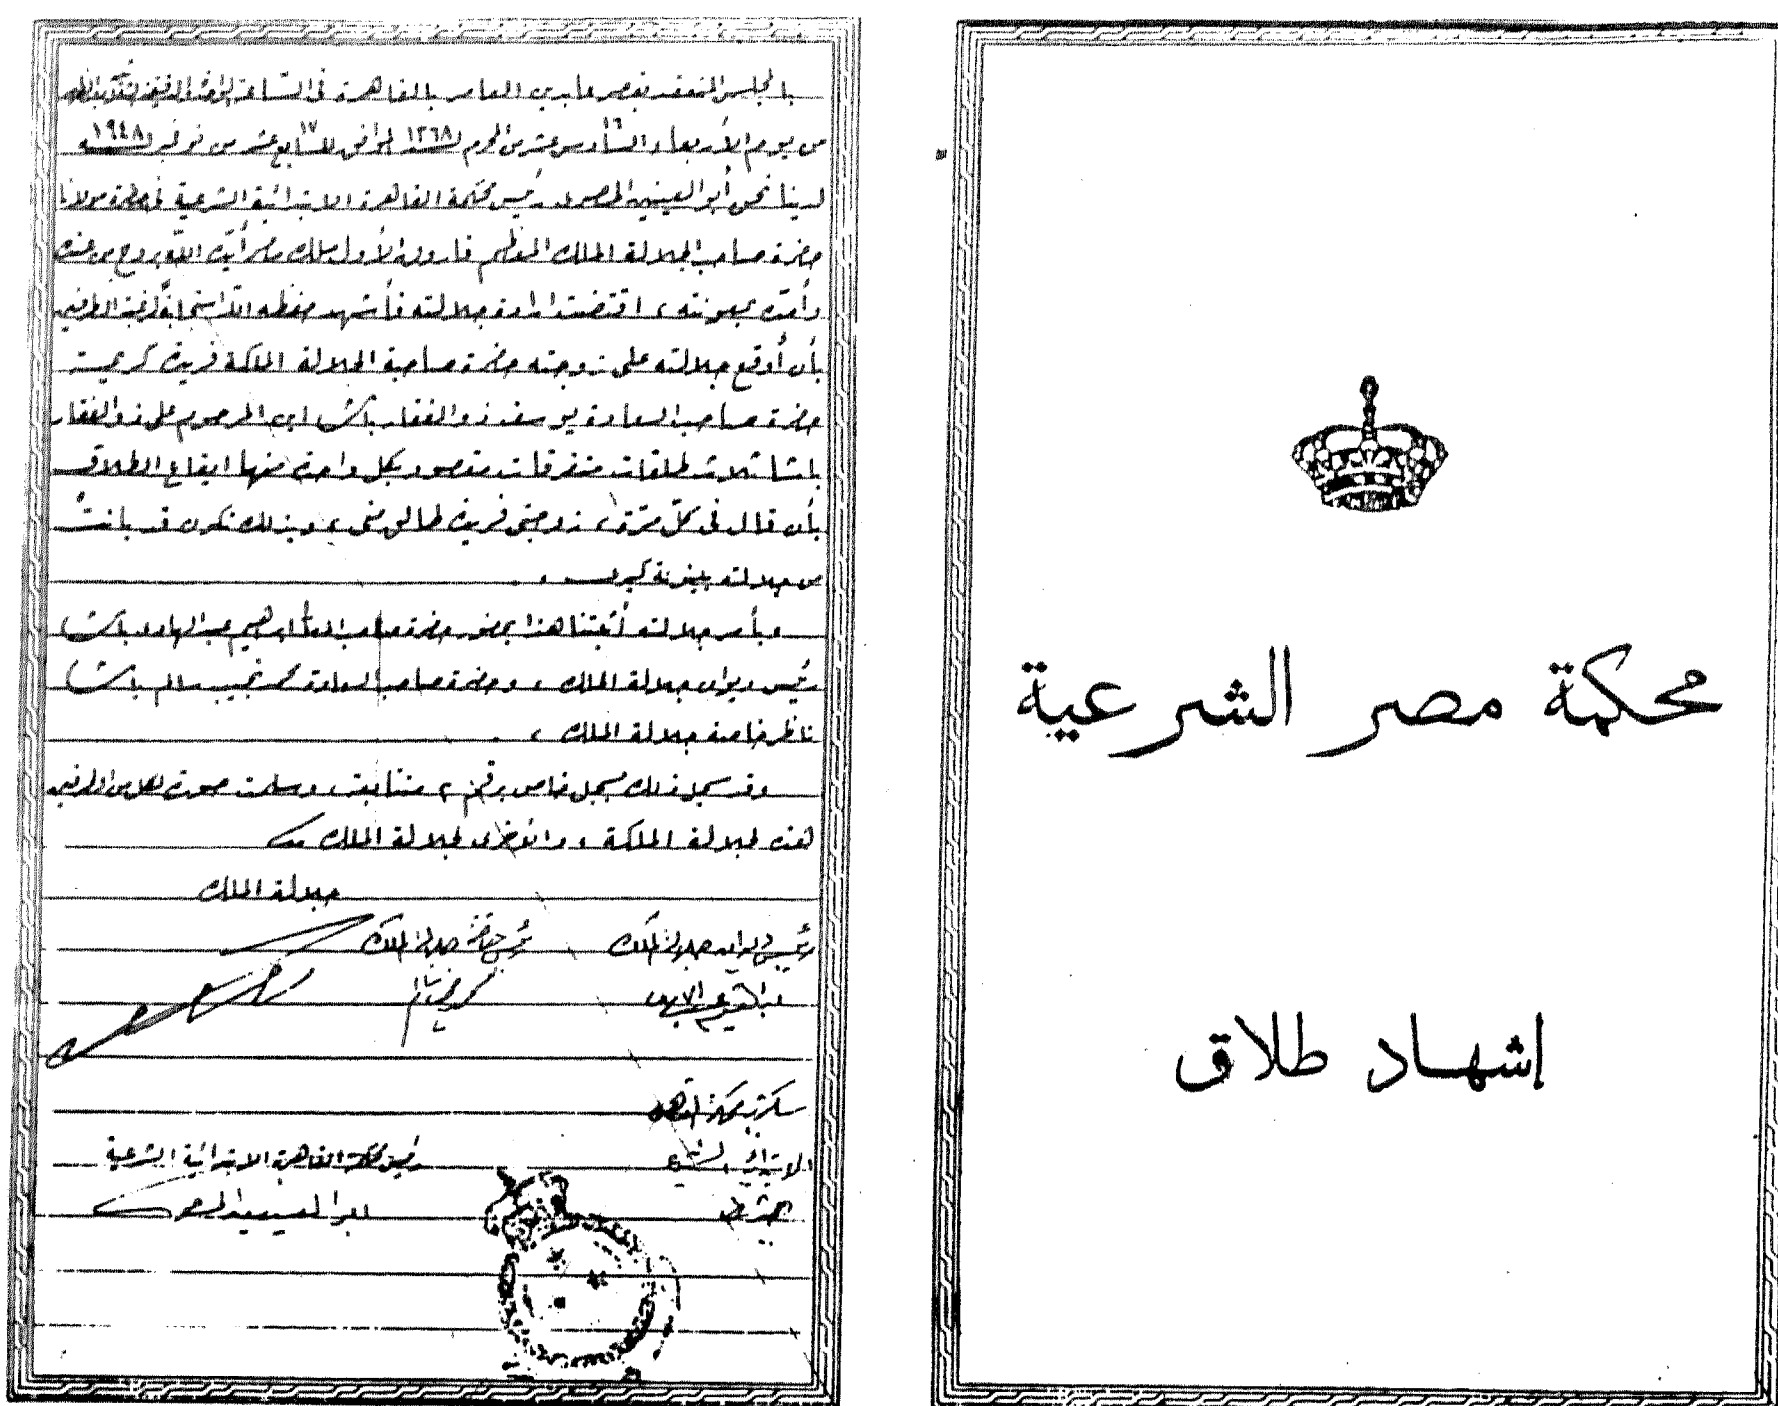 محكمة مصر الشرعية
إشهاد طلاق
بالمجلس المنعقد بقصر عابدين العامر بالقاهرة فى الساعة
من يوم الأربعاء السادس عشر ١٦ من المحرم سنة ١٣٦٨ الموافق للسابع عشر ١٧ من نوفمبر سنة ١٩٤٨
لدينا نحن أبو العينين رئيس محكمة القاهرة الابتدائية الشرعية مولانا
حضرة صاحب الجلالة الملك المعظم فاروق الأول ملك مصر أيده الله بروح من عنده
وأمده بمعونته، اقتضت ارادة جلالته فأشهد حفظه الله الطرفين
بأن أوقع جلالته على زوجته حضرة صاحبة الجلالة الملكة فريدة كريمة
حضرة صاحب السعادة يوسف ذو الفقار باشا ابن المرحوم على ذو الفقار
باشا ثلاث طلقات متفرقات مقصود بكل واحدة منها ايقاع الطلاق
بأن قال فى كل مرة، زوجتى فريدة طالق منى، وبذلك تكون قد بانت
من جلالته بينونة كبرى.
وبأمر جلالته أثبتنا هذا بحضور حضرة صاحب الدولة ابراهيم عبد الهادى باشا
رئيس ديوان جلالة الملك، وحضرة صاحب السعادة محمد نجيب سالم باشا
ناظر خاصة جلالة الملك،
وقد سجل ذلك بسجل خاص برقم ٢ متتابعة، وسلمت صورة لكل من الطرفين
هذه لجلالة الملكة، والأخرى لجلالة الملك
جلالة الملك
رئيس ديوان جلالة الملك جلالة الملك
سكرتير محكمة القاهرة
الابتدائية الشرعية رئيس محكمة القاهرة الابتدائية الشرعية